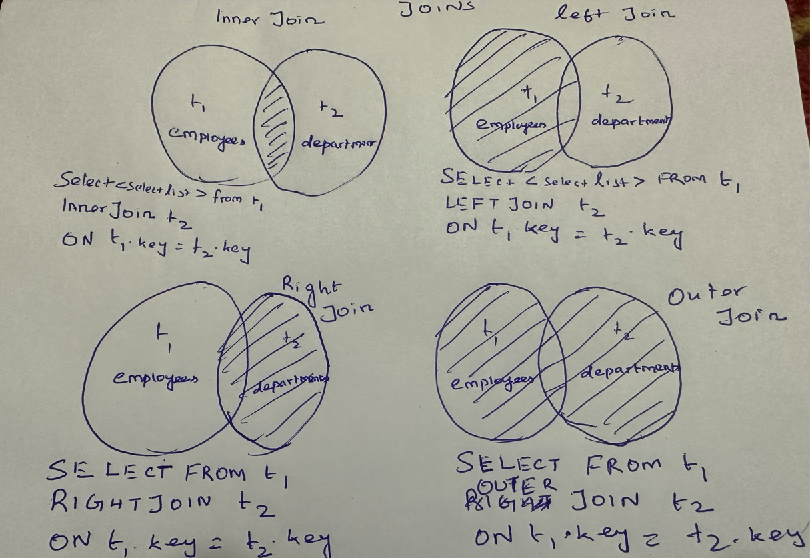 JOINS
Inner Join
t1
employees
t2
department
Select <Select list> from t1
Inner Join t2
ON t1.key = t2.key
left Join
t1
employees
t2
department
SELECT <Select list> FROM t1
LEFT JOIN t2
ON t1 key = t2.key
Right
Join
t1
employees
t2
department
SELECT FROM t1
RIGHT JOIN t2
ON t1.key = t2.key
Outer
Join
t1
employees
t2
department
SELECT FROM t1
OUTER JOIN t2
ON t1.key = t2.key